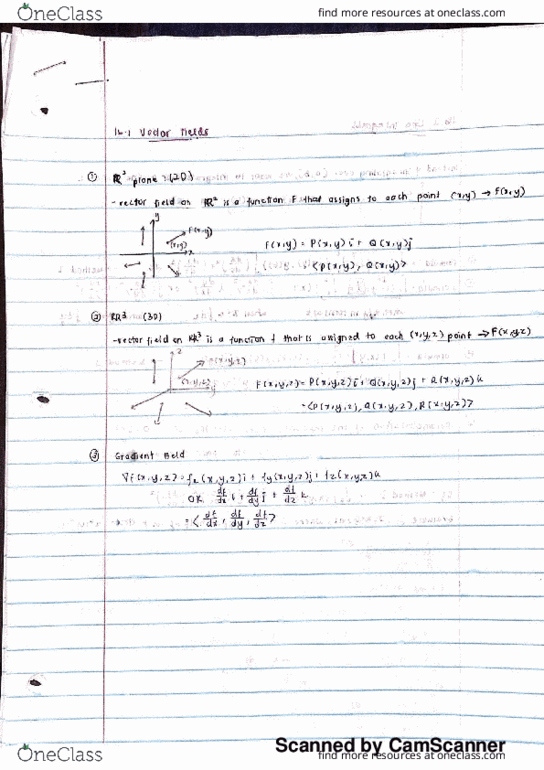 OneClass
find more resources at oneclass.com
16.1 Vector Fields
① ℝ² plane (2D)
-vector field on ℝ² is a function F that assigns to each point (x,y) → F(x,y)
y
F(x,y)
(x,y)
x
F(x,y) = P(x,y)i + Q(x,y)j
= <P(x,y), Q(x,y)>
② ℝ³ (3D)
-vector field on ℝ³ is a function f that is assigned to each (x,y,z) point → F(x,y,z)
z
F(x,y,z)
(x,y,z)
F(x,y,z) = P(x,y,z)i + Q(x,y,z)j + R(x,y,z)k
= <P(x,y,z), Q(x,y,z), R(x,y,z)>
③ Gradient field
∇f(x,y,z) = fx(x,y,z)i + fy(x,y,z)j + fz(x,y,z)k
OR df/dx i + df/dy j + df/dz k
= <df/dx, df/dy, df/dz>
Scanned by CamScanner
OneClass
find more resources at oneclass.com